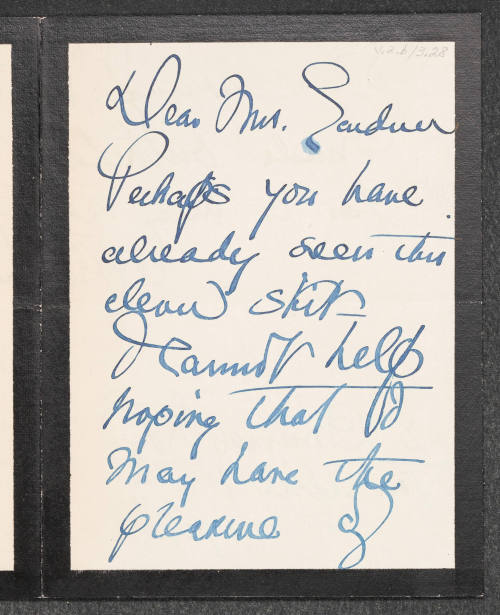 v.2.b/3.28
Dear Mrs. Gardner
Perhaps you have
already seen this
clever skit–
I cannot help
hoping that I
may have the
pleasure of